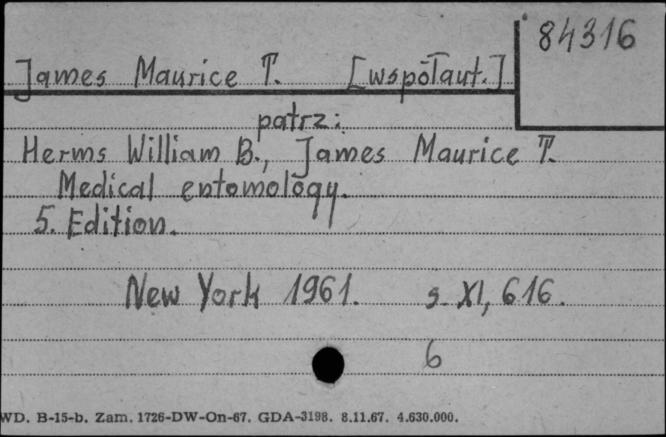 84316
James Maurice T. [współaut.]
patrz:
Herms William B., James Maurice T.
Medical entomology.
5. Edition.
New York 1961. s. XI, 616.
6
WD. B-15-b. Zam. 1726-DW-On-67. GDA-3198. 8.11.67. 4.630.000.